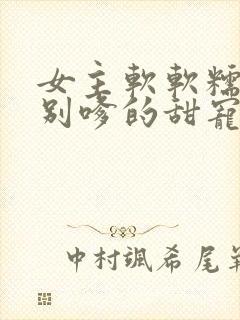 女主軟軟糯
別嗲的甜寵
中村颯希尾